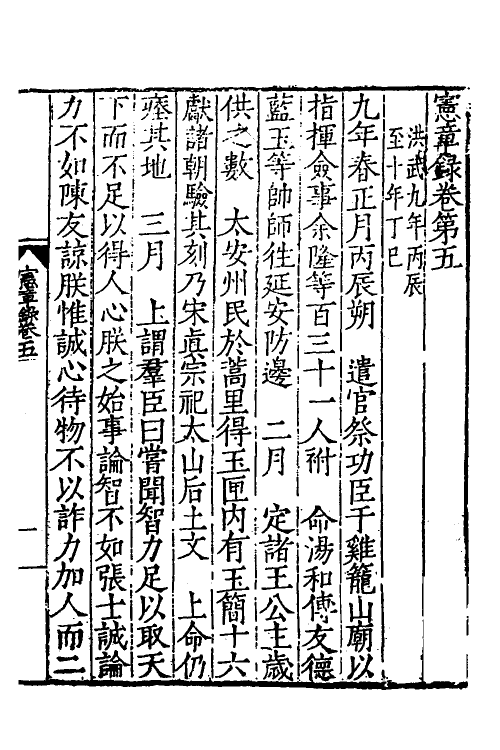 憲章錄卷第五
洪武九年丙辰
至十年丁巳
九年春正月丙辰朔　遣官祭功臣于雞籠山廟以
指揮僉事余隆等百三十一人祔　命湯和傅友德
藍玉等帥師徃延安防邊　二月　定諸王公主歲
供之數　太安州民於蒿里得玉匣内有玉簡十六
獻諸朝驗其刻乃宋真宗祀太山后土文　上命仍
瘞其地　三月　上謂羣臣曰嘗聞智力足以取天
下而不足以得人心朕之始事論智不如張士誠論
力不如陳友諒朕惟誠心待物不以詐力加人而二
憲章錄卷五
一